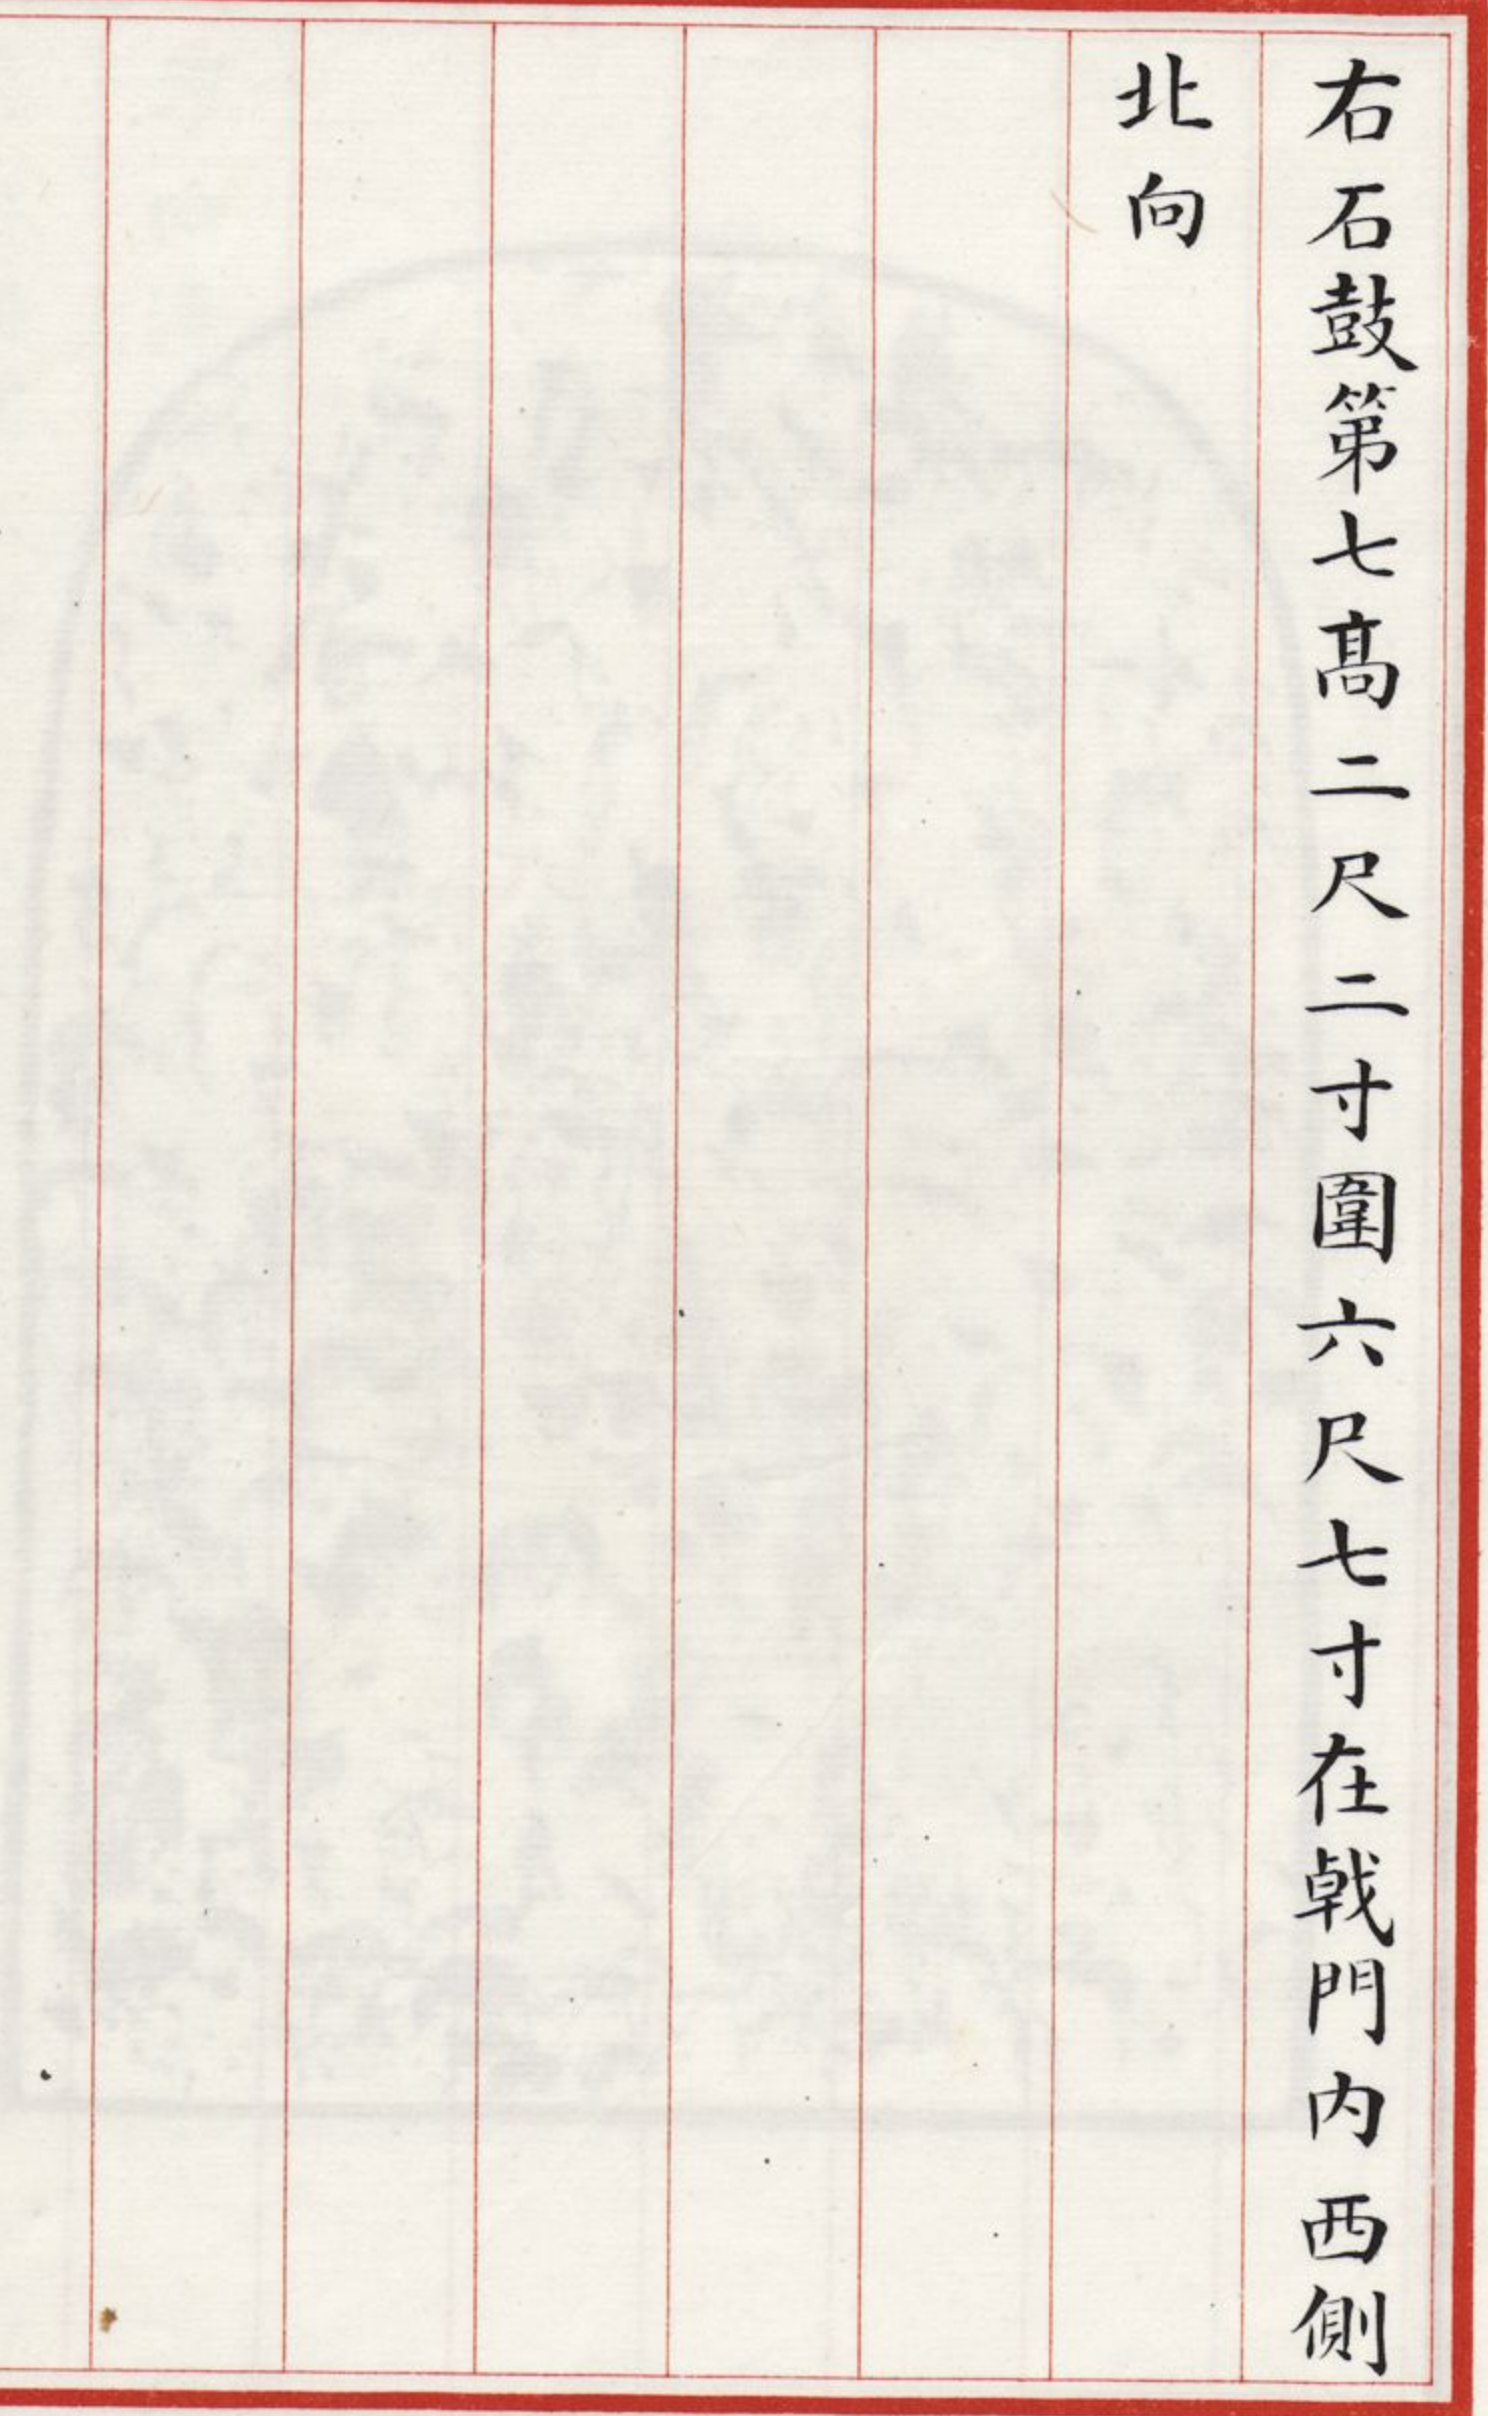 右石鼓第七高二尺二寸圍六尺七寸在戟門内西側
北向